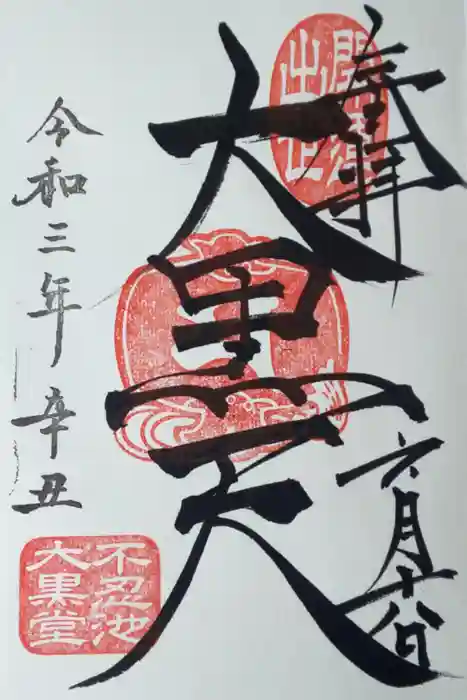 奉拝
六月十八日
大黒天
令和三年辛丑
不忍池
大黒堂